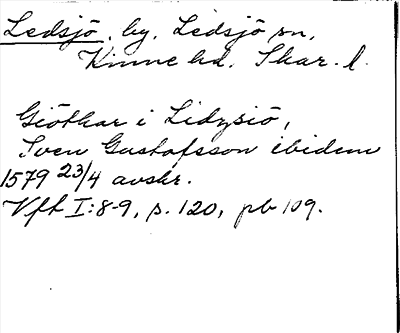 Ledsjö, by, Ledsjö sn,
Kinne hd. Skar. l.
Giöthar i Lidzsiö,
Sven Gustafsson ibidem
1579 23/4 avskr.
Vft I:8-9, s. 120, pb 109.